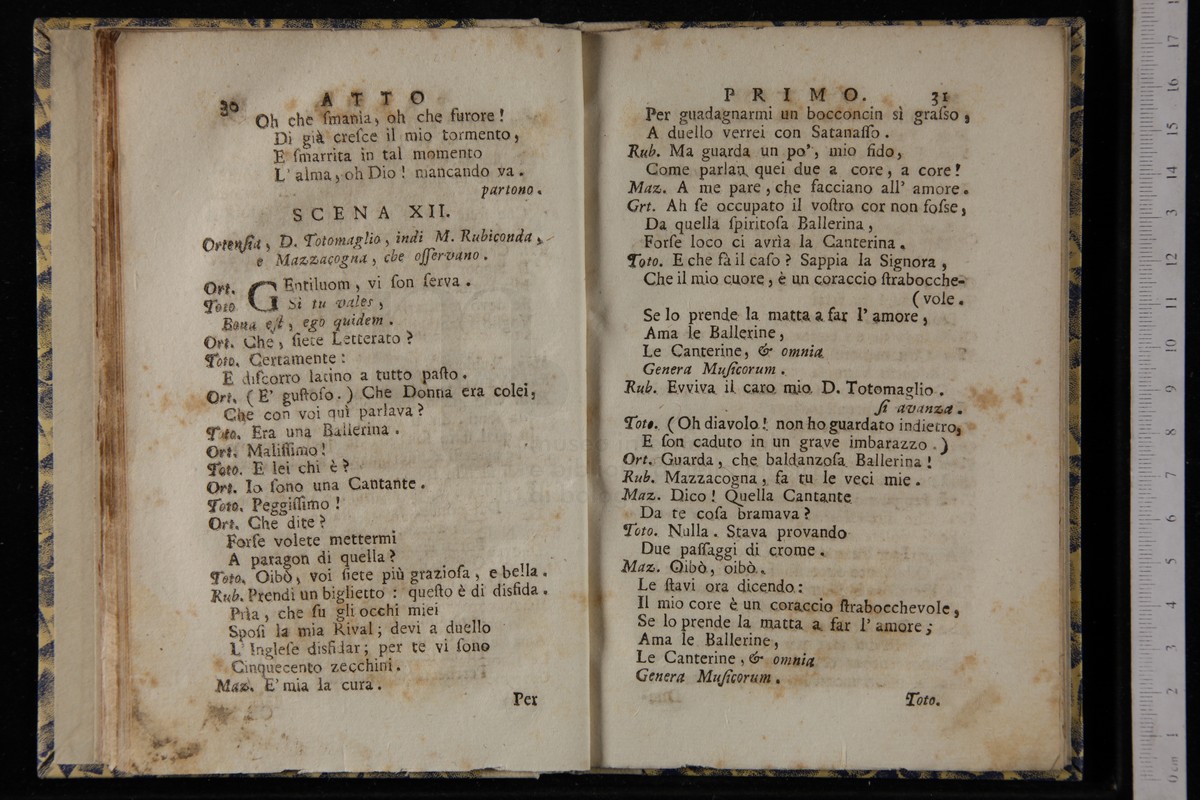 30
ATTO
Oh che ſmania, oh che furore!
Di già creſce il mio tormento,
E ſmarrita in tal momento
L' alma, oh Dio! mancando va.
partono.
SCENA XII.
Ortenſia, D. Totomaglio, indi M. Rubiconda,
e Mazzacogna, che oſſervano.
Ort. GEntiluom, vi ſon ſerva.
Toto Si tu vales,
Bona eſt, ego quidem.
Ort. Che, ſiete Letterato?
Toto. Certamente:
E diſcorro latino a tutto paſto.
Ort. (E' guſtoſo.) Che Donna era colei,
Che con voi quì parlava?
Toto. Era una Ballerina.
Ort. Maliſſimo!
Toto. E lei chi è?
Ort. Io ſono una Cantante.
Toto. Peggiſſimo!
Ort. Che dite?
Forſe volete mettermi
A paragon di quella?
Toto. Oibò, voi ſiete più grazioſa, e bella.
Rub. Prendi un biglietto: queſto è di disfida.
Pila, che ſu gli occhi miei
Spoſi la mia Rival; devi a duello
L' Ingleſe disfidar; per te vi ſono
Cinquecento zecchini.
Maz. E' mia la cura.
Per
PRIMO.
31
Per guadagnarmi un bocconcin sì graſso,
A duello verrei con Satanaſſo.
Rub. Ma guarda un po', mio fido,
Come parlan quei due a core, a core!
Maz. A me pare, che facciano all' amore.
Grt. Ah ſe occupato il voſtro cor non foſse,
Da quella ſpiritoſa Ballerina,
Forſe loco ci avrìa la Canterina.
Toto. E che fà il caſo? Sappia la Signora,
Che il mio cuore, è un coraccio ſtrabocche-
(vole.
Se lo prende la matta a far l' amore,
Ama le Ballerine,
Le Canterine, & omnia
Genera Muſicorum.
Rub. Evviva il caro mio D. Totomaglio.
ſi avanza.
Toto. (Oh diavolo! non ho guardato indietro,
E ſon caduto in un grave imbarazzo.)
Ort. Guarda, che baldanzoſa Ballerina!
Rub. Mazzacogna, fa tu le veci mie.
Maz. Dico! Quella Cantante
Da te coſa bramava?
Toto. Nulla. Stava provando
Due paſſaggi di crome.
Maz. Oibò, oibò.
Le ſtavi ora dicendo:
Il mio core è un coraccio ſtrabocchevole,
Se lo prende la matta a far l' amore;
Ama le Ballerine,
Le Canterine, & omnia
Genera Muſicorum.
Toto.